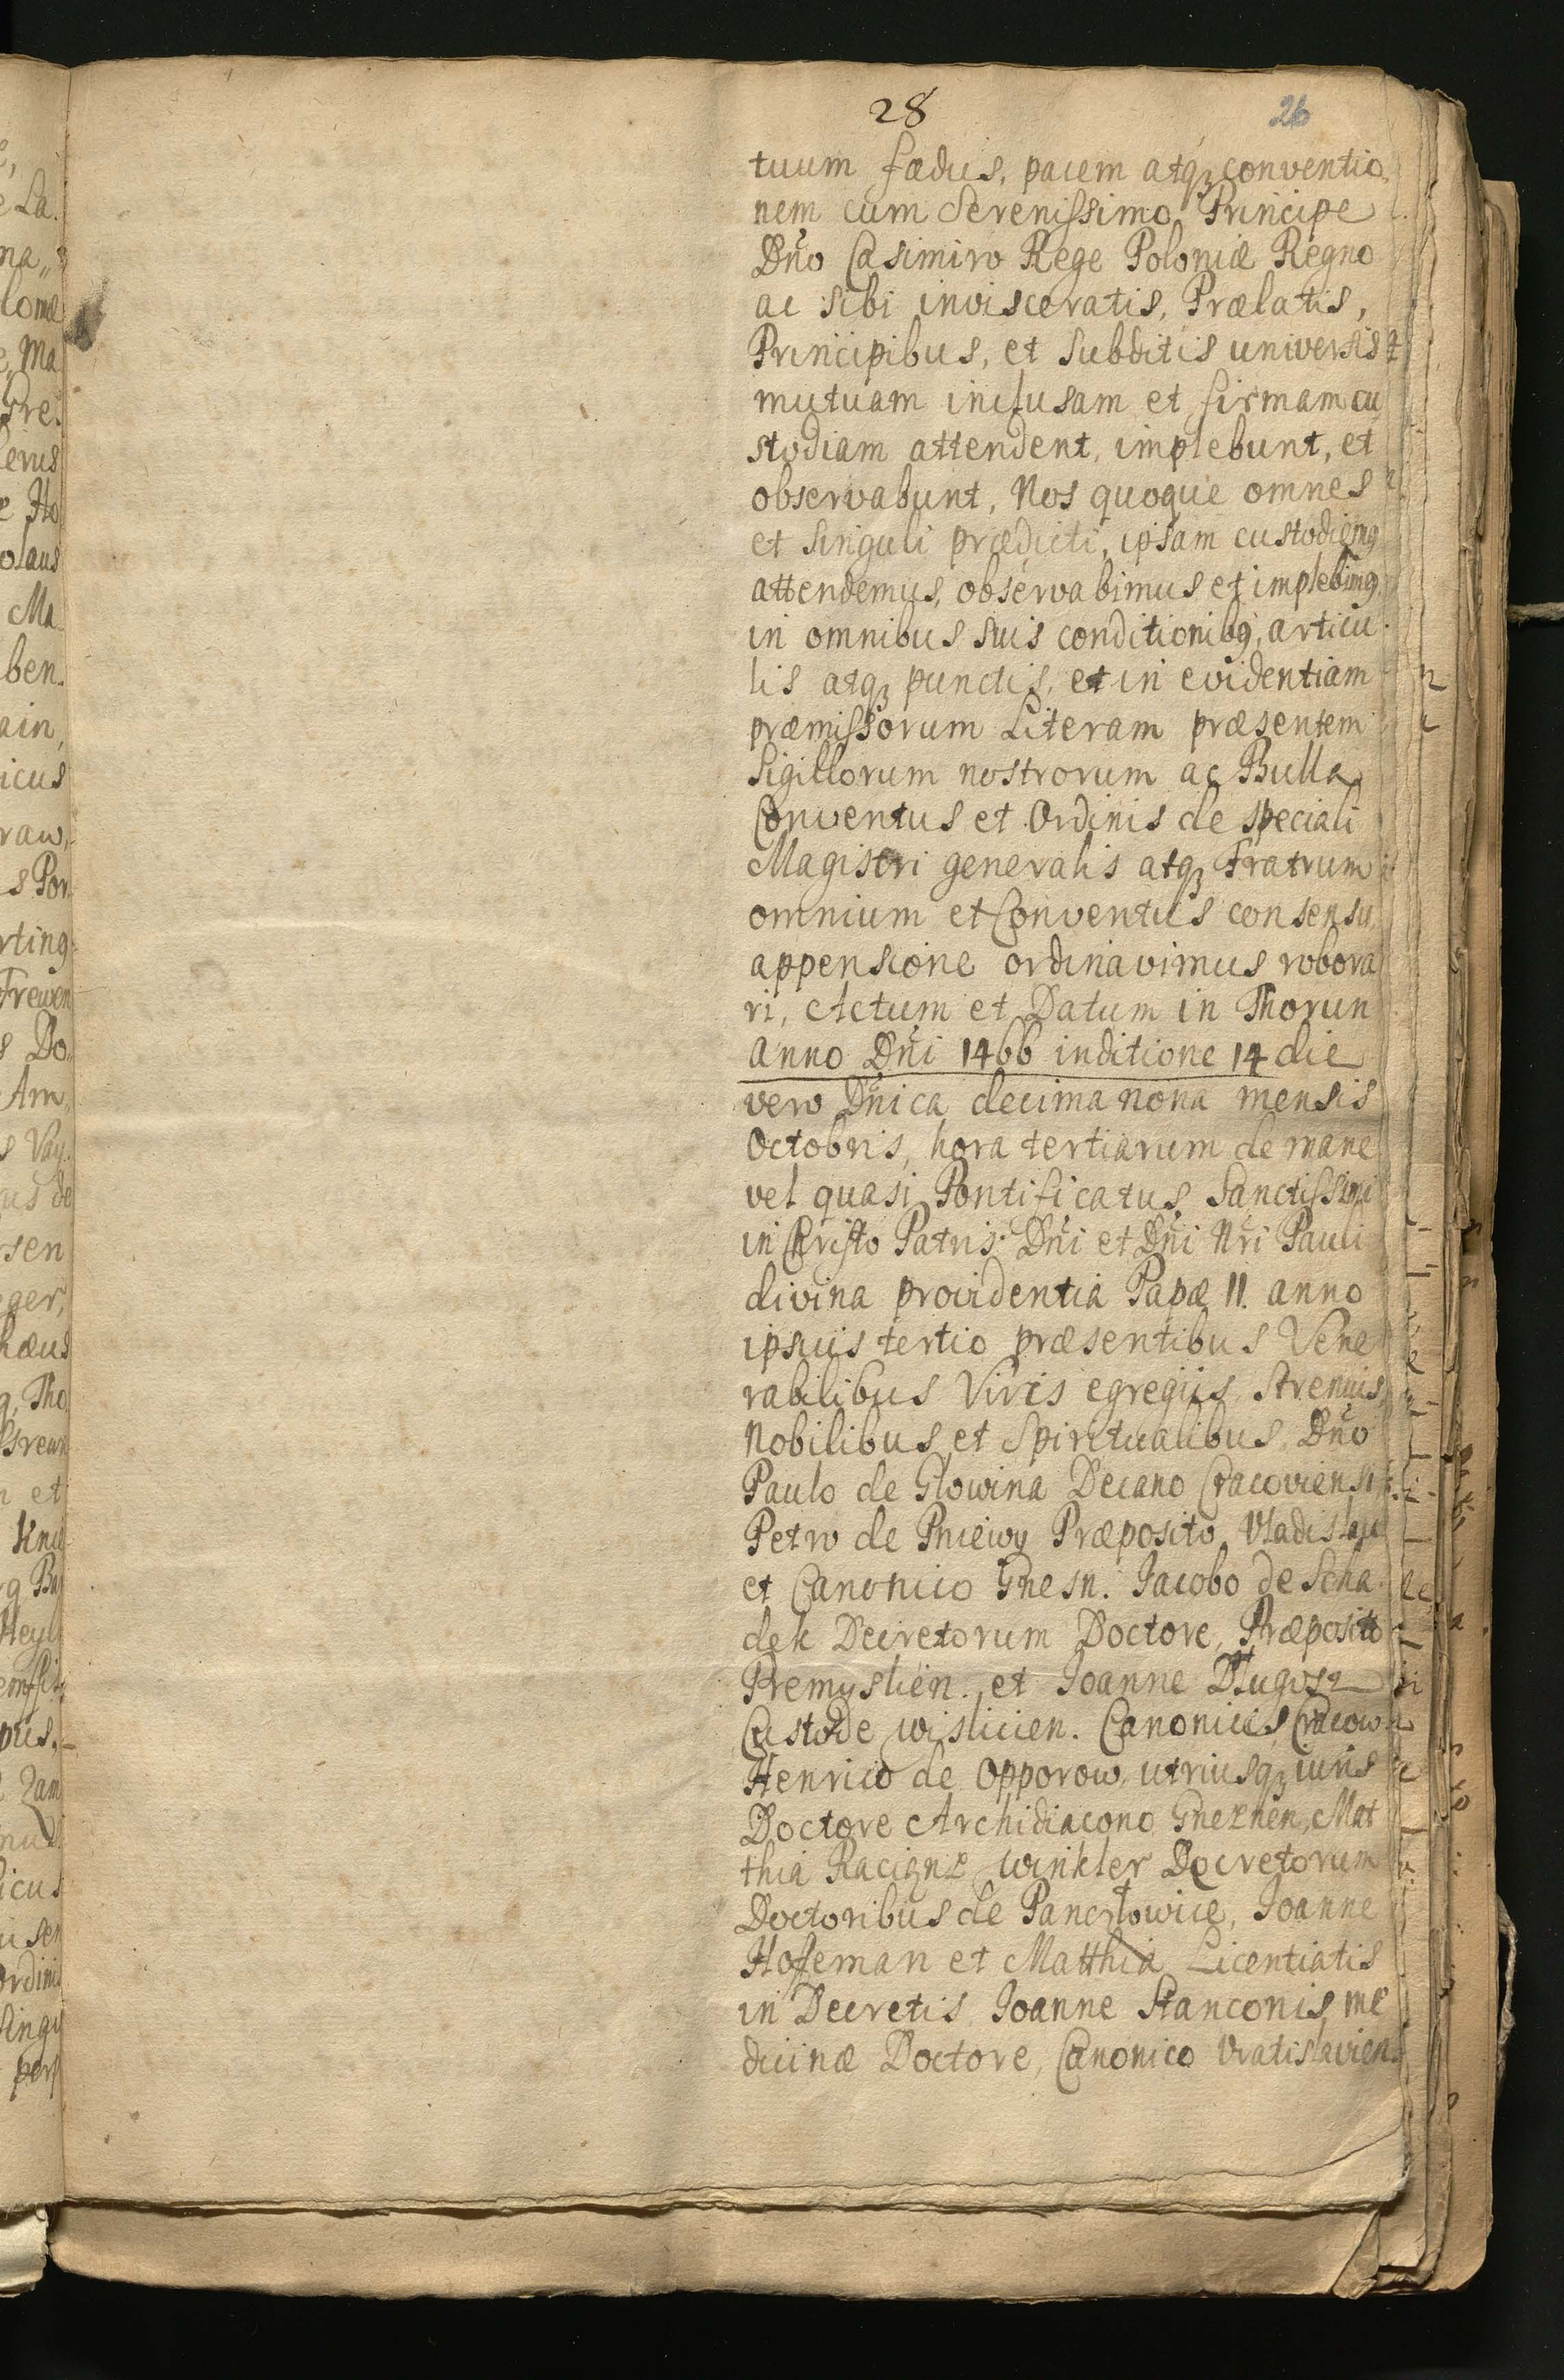 28 26
tuum fædus, pacem atqꝫ conventio
nem cum Serenissimo Principe
Dño Casimiro Rege Poloniæ Regno
ac sibi invisceratis, Prælatis,
Principibus, et subditis universis
mutuam inclusam et firmam cu
stodiam attendent, implebunt, et
observabunt, Nos quoque omnes
et singuli prædicti, ipsam custodiemꝰ
attendemus, observabimus et implebimꝰ
in omnibus suis conditionibꝰ, articu
lis atqꝫ punctis, et in evidentiam
præmissorum Literam præsentem
Sigillorum nostrorum ac Bulla
Conventus et Ordinis de speciali
Magistri generalis atqꝫ Fratrum
omnium et Conventus consensu
appensione ordinavimus robora
ri, Actum et Datum in Thorun
anno Dñi 1466 inditione 14 die
vero Dñica decima nona mensis
Octobris, hora tertiarum de mane
vel quasi Pontificatus Sanctissimi
in Christo Patris Dñi et Dñi Nri Pauli
divina providentia Papæ II. anno
ipsius tertio præsentibus Vene
rabilibus Viris egregiis strenuis,
Nobilibus et Spiritualibus Dño
Paulo de Glowina Decano Cracoviensi
Petro de Pniewy Præposito Vladislavi
et Canonico Gnesn. Iacobo de Scha
dek Decretorum Doctore, Præposito
Premyslien. et Ioanne Długosz
Custode Wislicien. Canonicis Cracow
Henrico de Opporow, utriusqꝫ iuris
Doctore Archidiacono Gneznen, Mat
thia Raciąnz Winkler Decretorum
Doctoribus de Pancrłowice, Ioanne
Hofeman et Matthia Licentiatis
in Decretis Ioanne Stanconis me
dicinæ Doctore, Canonico Vratislavien.